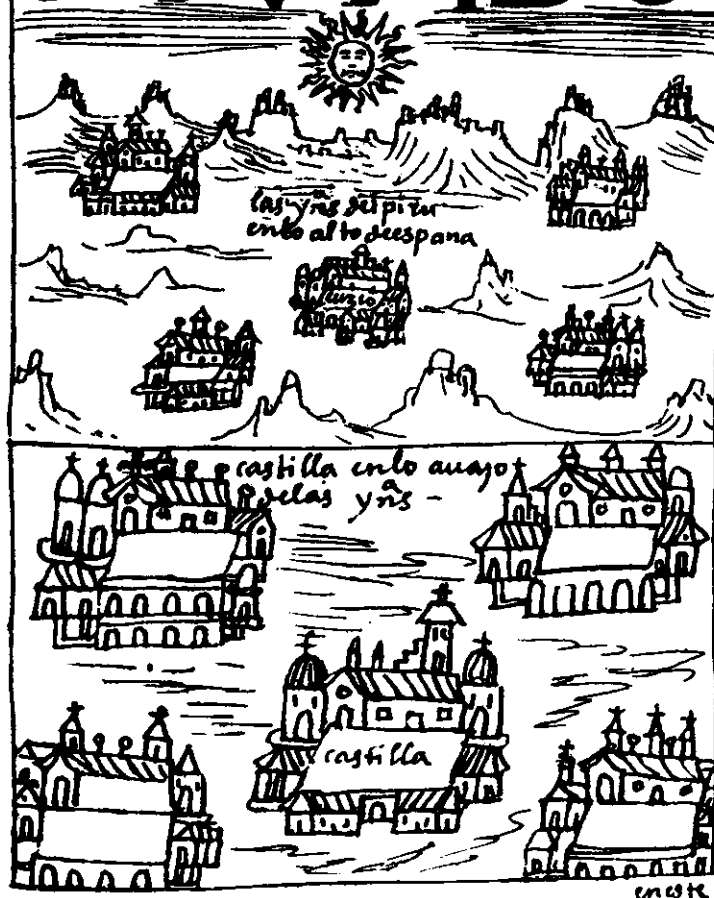 las yns del piru
en lo alto de espana
cuzco
castilla en lo auajo
de las yns -
castilla
en este